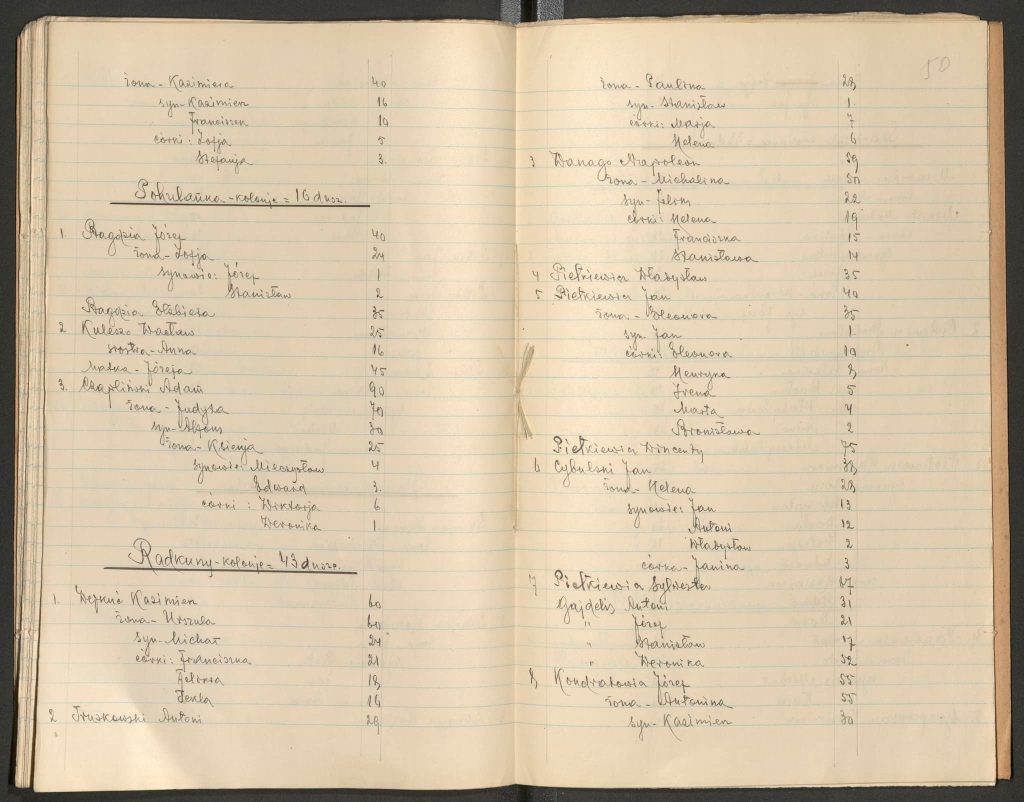 żona - Kazimiera 40
syn - Kazimierz 16
Franciszek 10
córki: Zofja 5
Stefanja 3.
Pohulanka - kolonje = 16 dusz.
1. Józef 40
żona - Zofja 24
synowie: Józef 1
Stanisław 2
Elżbieta 35
2 Kulesza Wacław 25
siostra - Anna 16
matka - Józefa 45
3. Czapliński Adam 90
żona - Judyta 70
syn - Alfons 30
żona - Ksienja 25
synowie: Mieczysław 4
Edward 3.
córki: Wiktorja 6
Weronika 1
Radkuny - kolonje = 43 dusze.
1. Kazimierz 60
żona - Urszula 60
syn - Michał 24
córki: Franciszka 21
Felomia 18
Tekla 16
2 Truskowski Antoni 29
50
żona - Paulina 28
syn - Stanisław 1.
córki: Marja 7
Helena 6
3 Wanago Napoleon 59
żona - Michalina 50
syn - Feliks 22
córki: Helena 19
Franciszka 15
Stanisława 14
4 Pietkiewicz Władysław 35
5 Pietkiewicz Jan 40
żona - Eleonora 35
syn Jan 1.
córki: Eleonora 10
Henryka 8
Irena 5
Marta 4
Bronisława 2
Pietkiewicz Wincenty 75
6 Cybulski Jan 38
żona - Helena 28
synowie: Jan 13
Antoni 12
Władysław 2
córka - Janina 3
7 Pietkiewicz Sylwester
Gajdelis Antoni 31
" Józef 21
" Stanisław 17
" Weronika 52
8 Kondratowicz Józef 55
żona - Antonina 55
syn - Kazimierz 30